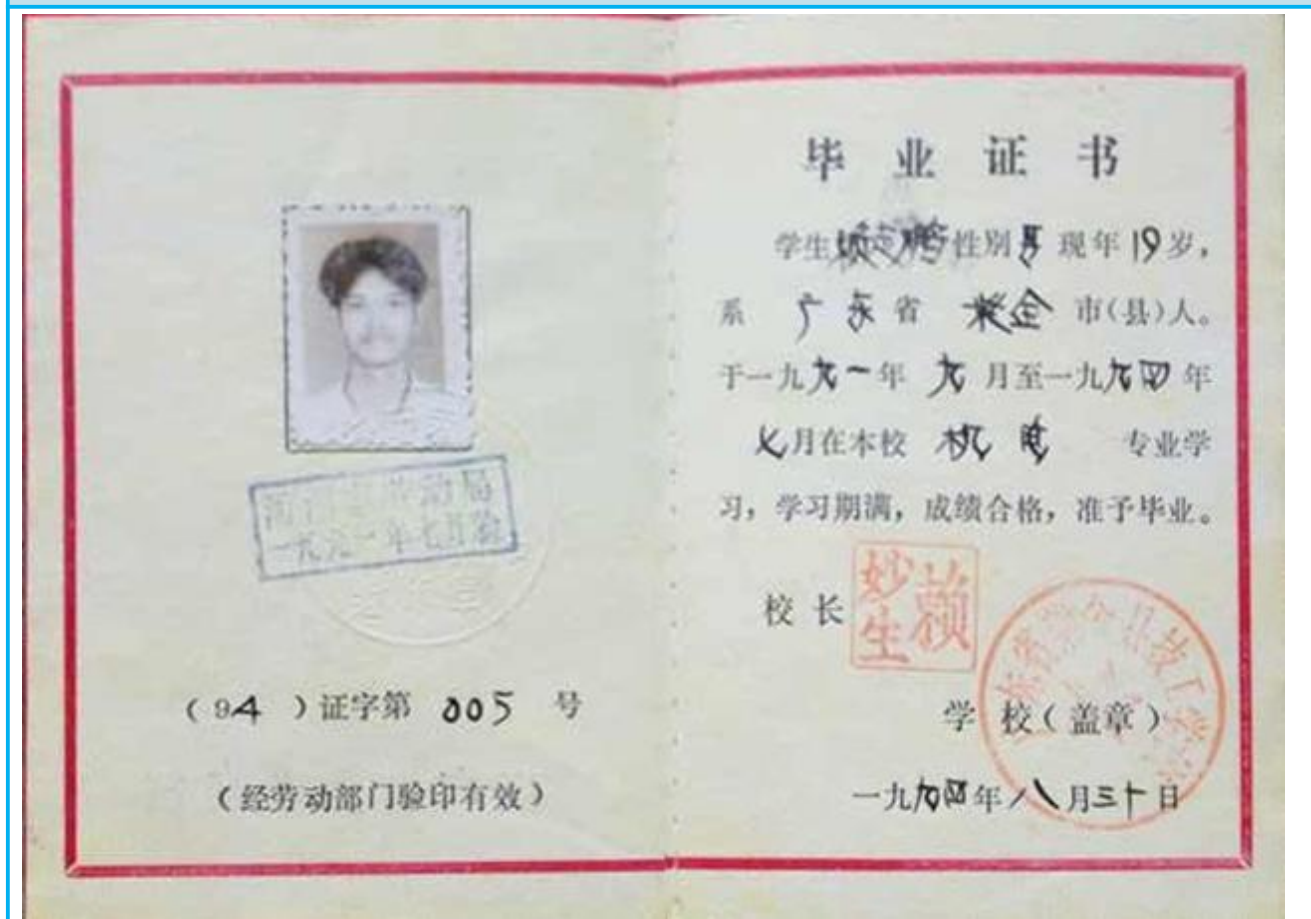 一九九一年七月验
(94)证字第 005 号
(经劳动部门验印有效)
毕业证书
学生 性别男 现年19岁,
系 广东省 紫金 市(县)人。
于一九九一年 九 月至一九九四年
七月在本校 机电 专业学
习,学习期满,成绩合格,准予毕业。
校长 赖妙生
广东省紫金县技工学校
学校(盖章)
一九九四年八月三十日